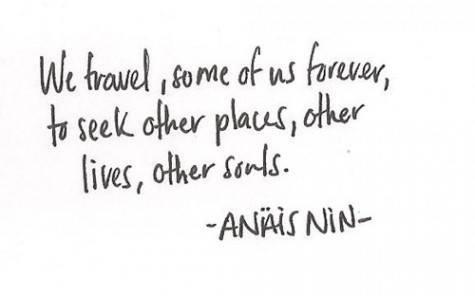 We travel, some of us forever,
to seek other places, other
lives, other souls.
-ANÄIS NIN-